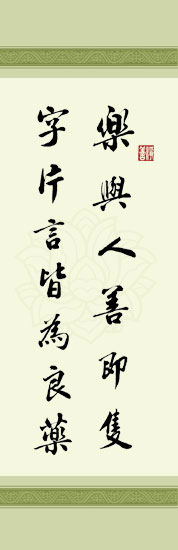 樂與人善即隻
字片言皆為良藥